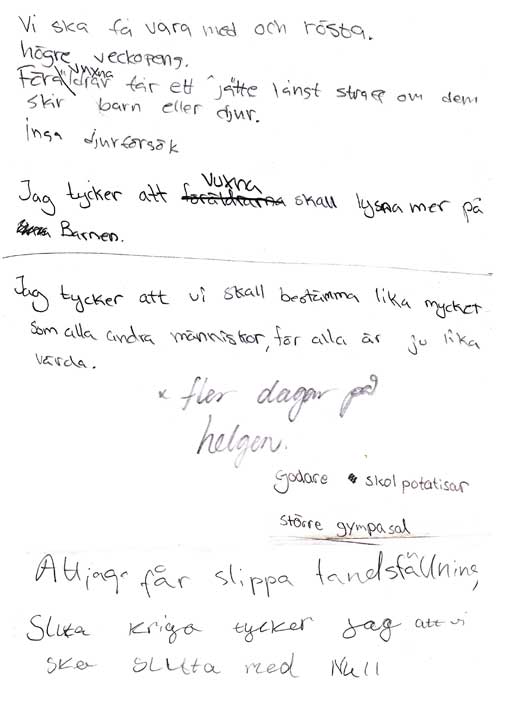 Vi ska få vara med och rösta.
högre veckopeng.
vuxna
Föräldrar får ett jätte långst straff om dem
slår barn eller djur.
inga djurförsök
Vuxna
Jag tycker att föräldrarna skall lyssna mer på
Barnen.
Jag tycker att vi skall bestämma lika mycket
som alla andra människor, för alla är ju lika
värda.
x fler dagar på
helgen.
Godare skolpotatisar
större gympasal
Att jag får slippa tandställning
Sluta kriga tycker jag att vi
ska sluta med Null